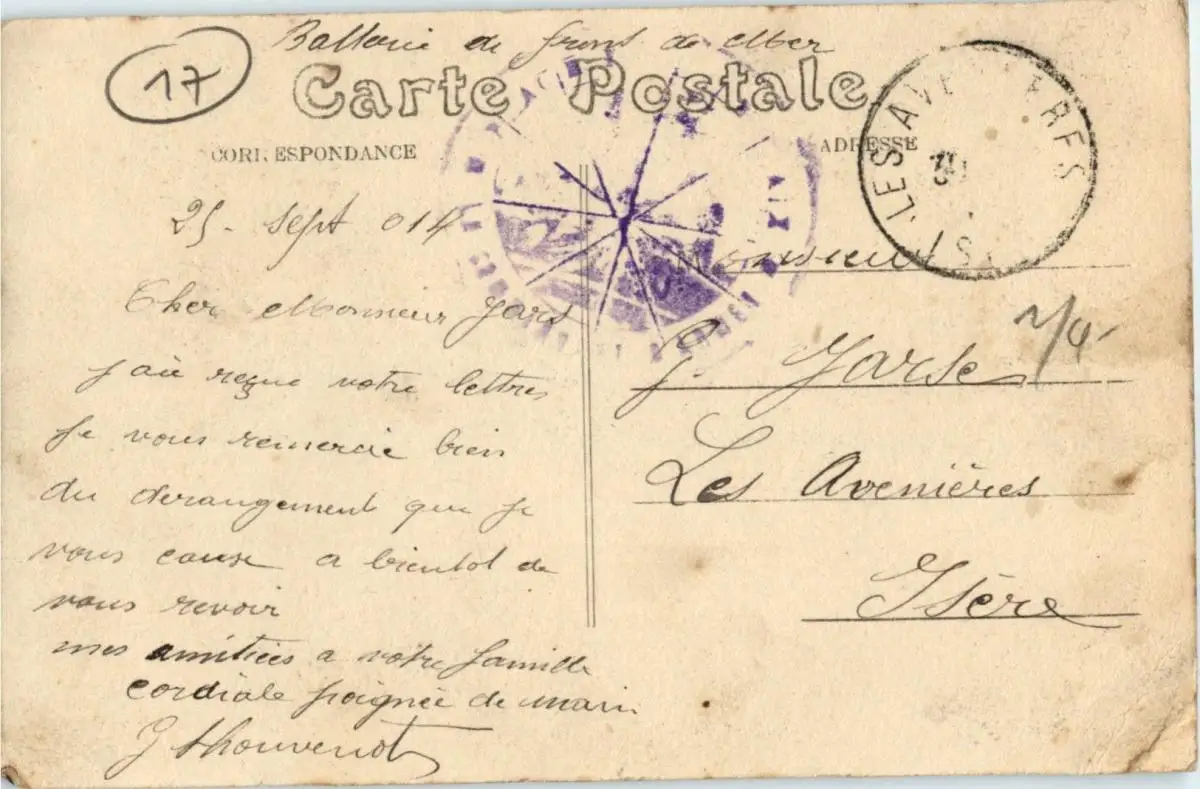 Batterie de front de Mer
17
Carte Postale
CORRESPONDANCE
ADRESSE
LES AVENIÈRES
25 - Sept 014
Cher Monsieur Jars
j'ai reçue votre lettres
Je vous remercie bien
du derangement que je
vous cause a bientot de
vous revoir
mes amitiées a votre famille
cordiale poignée de main
J Thouvenot
Monsieur
J. Jarse
Les Avenières
Isère